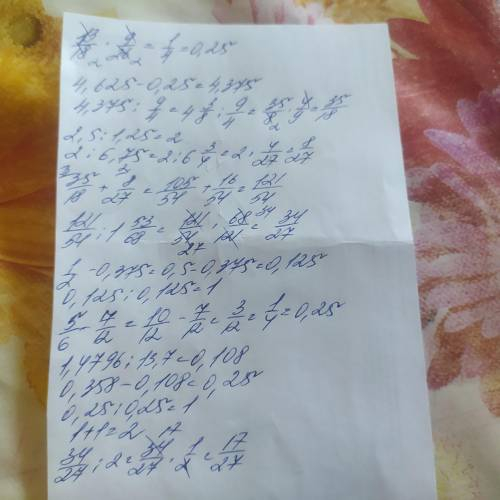 13/18 · 9/26 = 1/4 = 0,25
4,625 - 0,25 = 4,375
4,375 : 9/4 = 4 3/8 : 9/4 = 35/8 · 4/9 = 35/18
2,5 : 1,25 = 2
2 : 6,75 = 2 : 6 3/4 = 2 · 4/27 = 8/27
35/18 + 8/27 = 105/54 + 16/54 = 121/54
121/54 : 1 53/68 = 121/54 · 68/121 = 34/27
1/2 - 0,375 = 0,5 - 0,375 = 0,125
0,125 : 0,125 = 1
5/6 - 7/12 = 10/12 - 7/12 = 3/12 = 1/4 = 0,25
1,4796 : 13,7 = 0,108
0,358 - 0,108 = 0,25
0,25 : 0,25 = 1
1 + 1 = 2
34/27 : 2 = 34/27 · 1/2 = 17/27